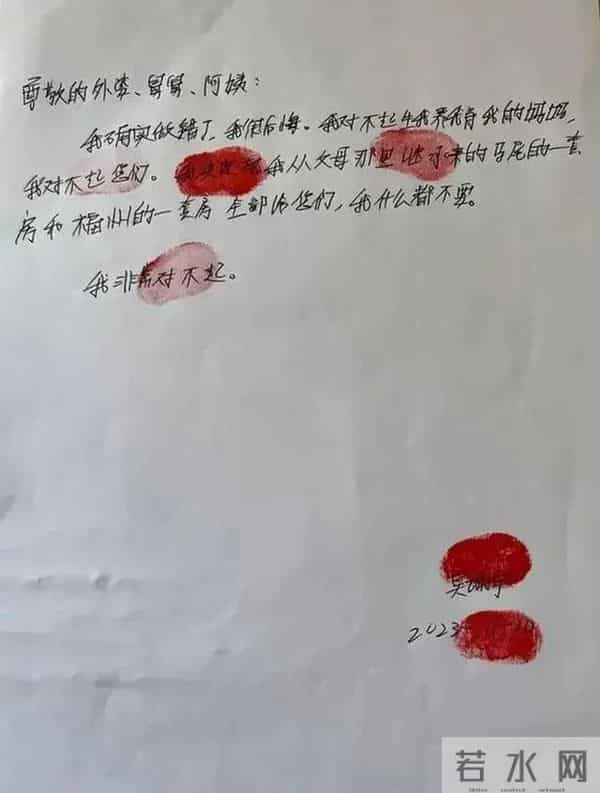 尊敬的外婆、舅舅、阿姨:
我确实做错了,我很后悔。我对不起生我养我育我的妈妈,
我对不起您们。我决定将我从父母那里继承来的马尾的一套
房和福州的一套房全部给您们,我什么都不要。
我非常对不起。
吴
2023
若水网